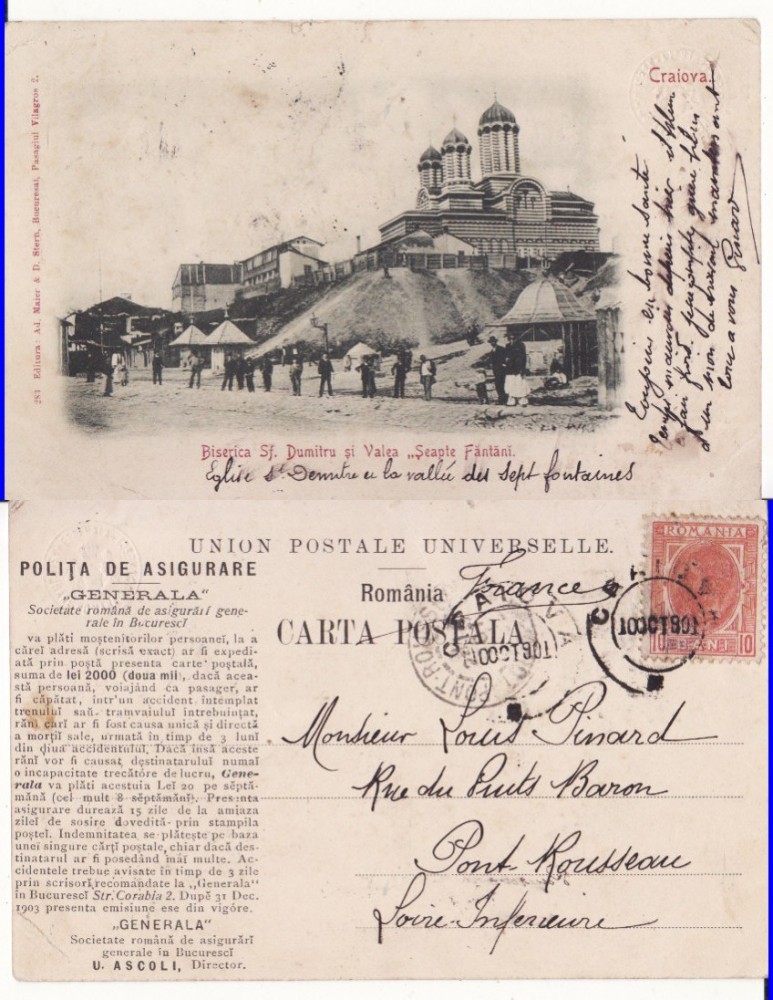 Craiova.
281 Editura: Ad. Maier & D. Stern, Bucuresci, Pasagiul Vilagros 2.
Toujours en bonne santé
temps mauvais depuis hier
fait froid
Pinard
Biserica Sf. Dumitru și Valea „Șeapte Fântâni.
Eglise St Demitre et la vallée des sept fontaines
UNION POSTALE UNIVERSELLE.
România France
CARTA POSTALA
ROMANIA
10 BANI 10
CRAIOVA
POLIȚA DE ASIGURARE
„GENERALA"
Societate română de asigurări gene-
rale în Bucurescĭ
va plăti moștenitorilor persoaneĭ, la a
căreĭ adresă (scrisă exact) ar fi expedi-
ată prin poștă presenta carte poștală,
suma de lei 2000 (două mii), dacă acea-
stă persoană, voiajând ca pasager, ar
fi căpătat, într'un accident întemplat
trenuluĭ saŭ tramvaiuluĭ întrebuințat,
rănĭ carĭ ar fi fost causa unică și directă
a morțiĭ sale, urmată în timp de 3 lunĭ
din diua accidentuluĭ. Dacă însă aceste
rănĭ vor fi causat destinataruluĭ numaĭ
o incapacitate trecătóre de lucru, Gene-
rala va plăti acestuia Leĭ 20 pe săptă-
mână (cel mult 8 săptămânĭ). Presenta
asigurare durează 15 zile de la amiaza
zileĭ de sosire dovedită prin stampila
poșteĭ. Indemnitatea se plătește pe baza
uneĭ singure cărțĭ poștale, chiar dacă des-
tinatarul ar fi posedând maĭ multe. Ac-
cidentele trebue avisate în timp de 3 zile
prin scrisorĭ recomandate la „Generala"
in Bucurescĭ Str. Corabia 2. După 31 Dec.
1903 presenta emisiune ese din vigóre.
„GENERALA"
Societate română de asigurărĭ
generale în Bucurescĭ
U. ASCOLI, Director.
Monsieur Louis Pinard
Rue du Puits Baron
Pont Rousseau
Loire-Inférieure